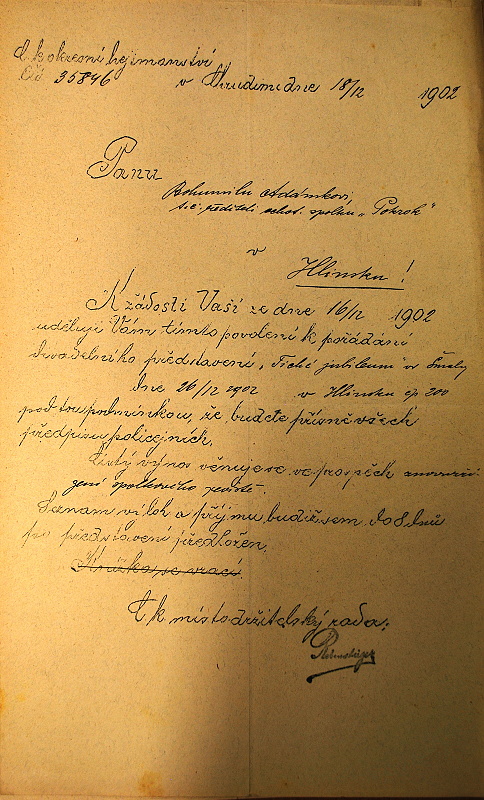 C. k. okresní hejtmanství
Čís. 35846
v Chrudimi dne 18/12 1902
Panu
Bohumilu Adámkovi,
t.č. řediteli ochot. spolku „Pokrok“
v
Hlinsku!
K žádosti Vaší ze dne 16/12 1902
uděluji Vám tímto povolení k pořádání
divadelního představení „Tiché jubileum“ a
dne 26/12 1902 v Hlinsku čp 200
pod tou podmínkou, že budete přísně všech
předpisů policejních.
Čistý výnos věnuje se ve prospěch
zení spolkového jeviště.
Seznam výloh a příjmu budiž sem do 8 dnů
po představení předložen.
Knížka se vrací.
C. k. místodržitelský rada: